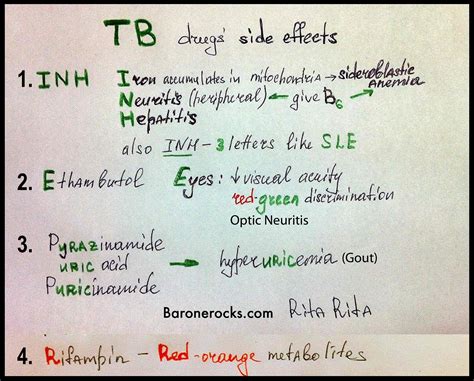 TB drugs' side effects
1. INH Iron accumulates in mitochondria → sideroblastic anemia
Neuritis (peripheral) ← give B6
Hepatitis
also INH - 3 letters like SLE
2. Ethambutol Eyes: ↓ visual acuity
red-green discrimination
Optic Neuritis
3. Pyrazinamide
uric acid → hyperuricemia (Gout)
Puricinamide
Baronerocks.com Rita Rita
4. Rifampin - Red-orange metabolites